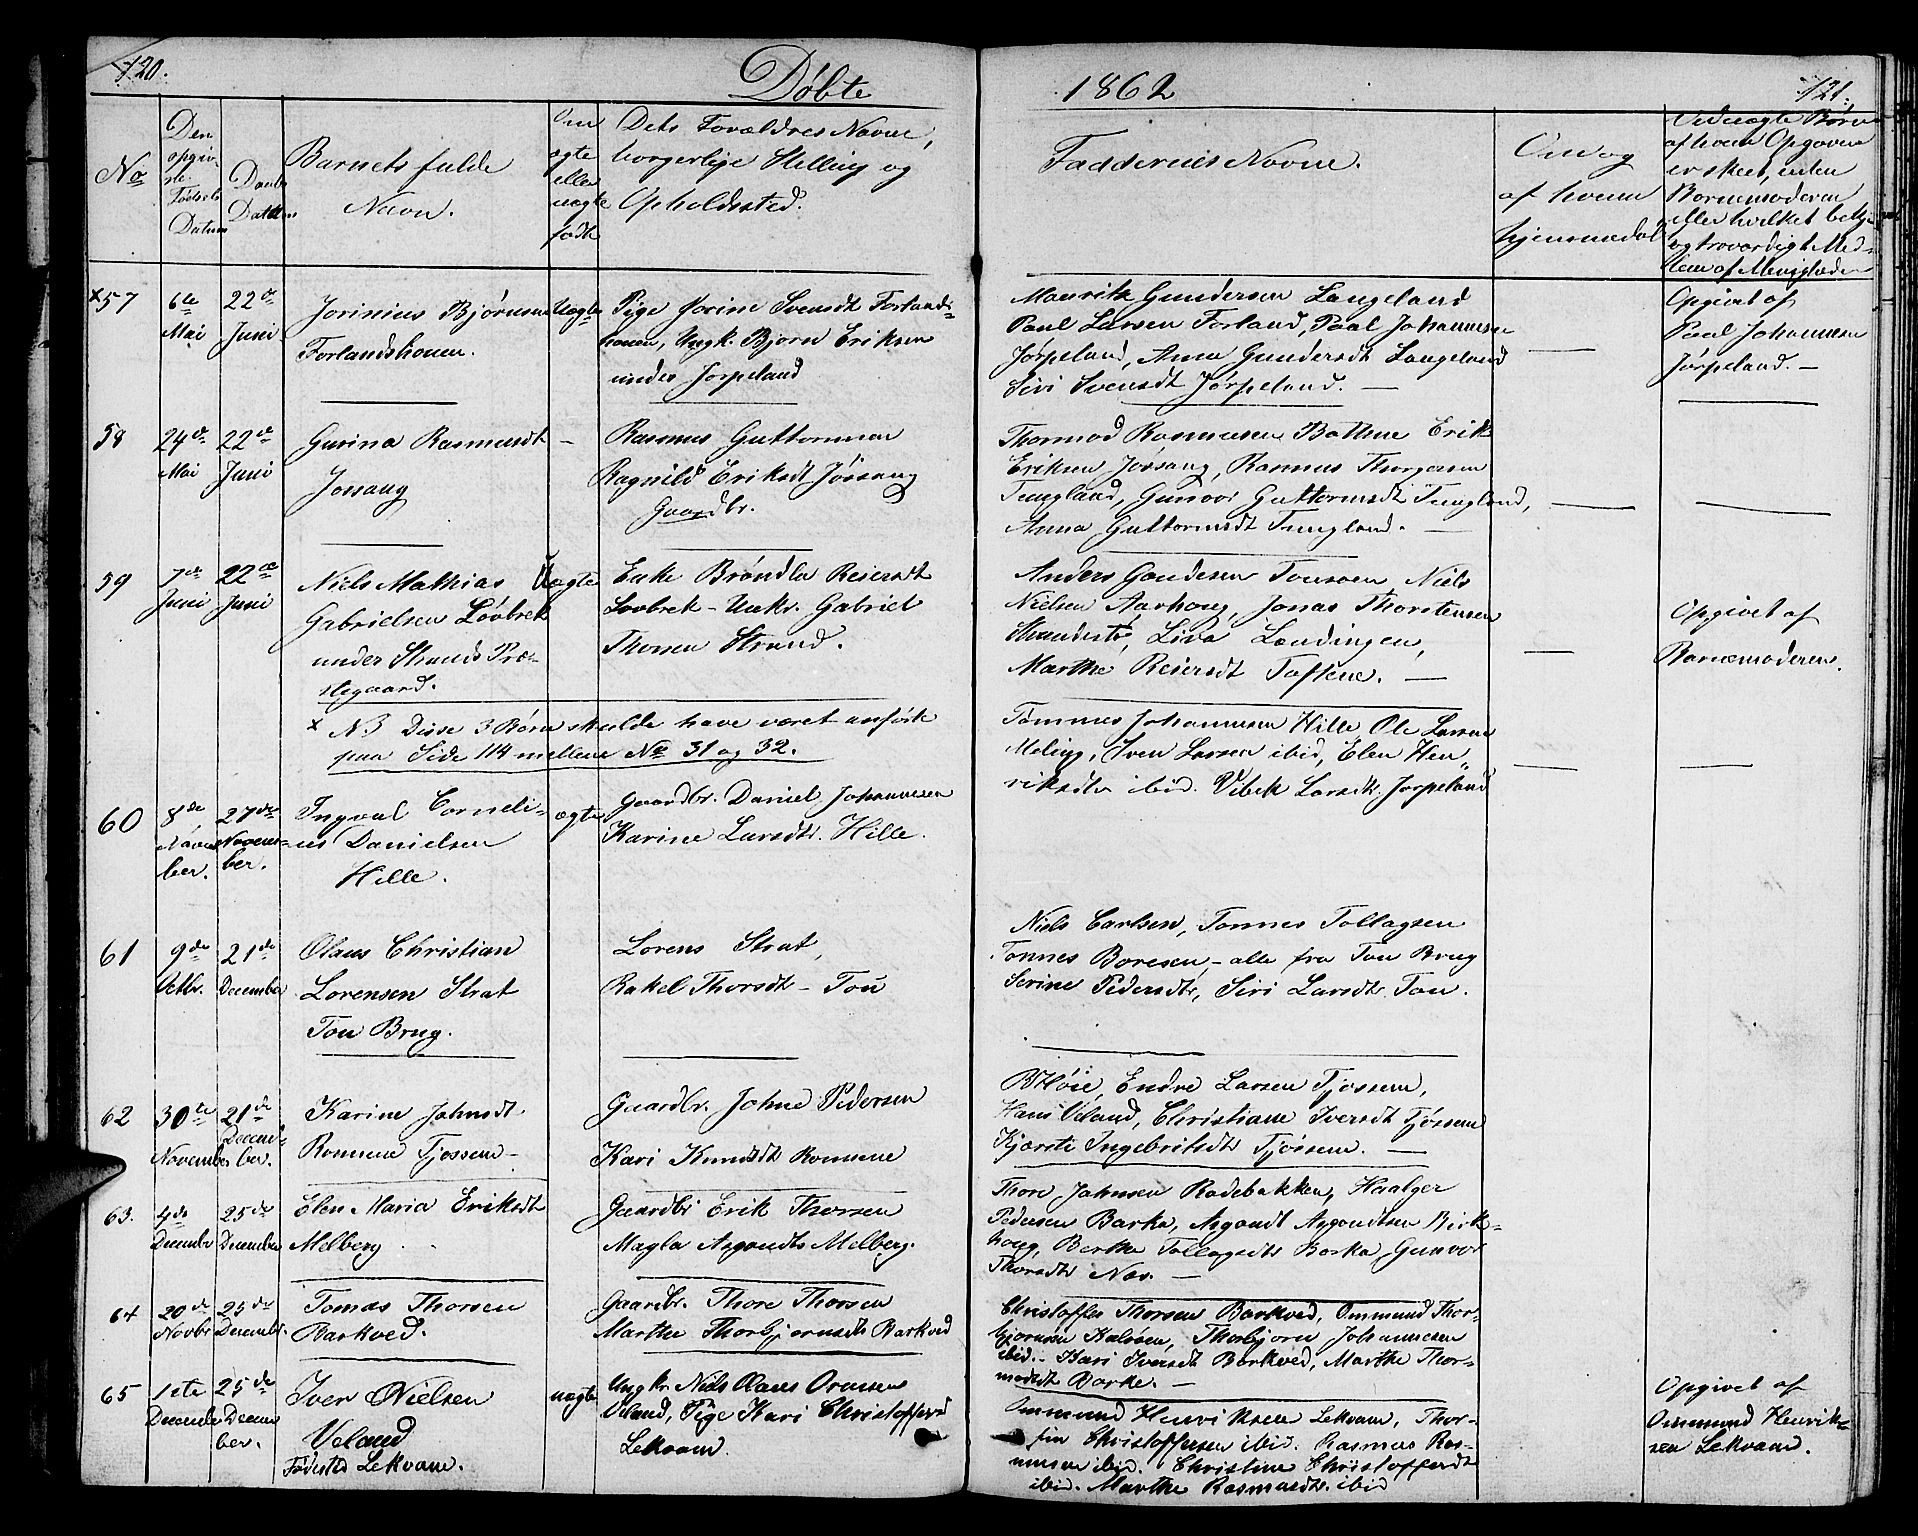 120.
Døbte
1862
121.
No
Den opgivne Fødsels Datum
Daabs Datum
Barnets fulde Navn.
Om ægte eller uægte født
Dets Forældres Navne, borgerlige Stilling og Opholdssted.
Faddernes Navne.
Om og af hvem hjemmedøbt
Ved uægte Børn af hvem Opgaven er skeet, enten Barnemoderen eller hvilket bekj. og troværdigt Medlem af Menigheden
x57
6te Mai
22de Juni
Jorinius Bjørnsen
Forlandshouen.
Uægte
Pige Jorine Svensdt Forlands-
houen, Ungk. Bjørn Eriksen
under Jørpeland
Mauritz Gundersen Langeland
Paul Larsen Forland, Paal Johannesen
Jørpeland, Anna Gundersdt Langeland
Siri Svensdt Jørpeland. —
—
Opgivet af
Paal Johannesen
Jørpeland. —
58
24de Mai
22de Juni
Gurina Rasmusdt
Jossang
–
Rasmus Guttormsen
Ragnild Eriksdt Jøssang
Gaardbr.
Thormod Rasmussen Battene Erik
Eriksen Jøssang, Rasmus Thorgersen
Tungland, Gunvor Guttormsdt Tungland,
Anna Guttormsdt Tungland. —
—
—
59
7de Juni
22de Juni
Niels Mathias
Gabrielsen Løvbrek
under Strands Præ-
stegaard.
Uægte
Enke Brøndla Reiersdt
Lovbrek - Unkr. Gabriel
Thorsen Strand.
Anders Gaudesen Tousøen Niels
Nielsen Aarhoug, Jonas Thorstensen
Strandstø, Liva Lændingen,
Marthe Reiersdt Toftene. —
—
Opgivet af
Barnemoderen.
x NB Disse 3 Børn skulde have været anført
paa Side 114 mellem No 31 og 32.
60
8de November.
27de November.
Ingval Corneli-
us Danielsen
Hille.
ægte
Gaardbr. Daniel Johannesen
Karine Larsdtr. Hille.
Tønnes Johannesen Hille, Ole Larsen
Meling, Sven Larsen ibid, Elen Hen-
riksdtr ibid. Vibek Larsdtr. Jørpeland
—
—
61
9de Octbr.
21de December
Olaus Christian
Lorensen Strat
Tou Brug.
Lorens Strat,
Rakel Thorsdtr - Tou
Niels Carlsen, Tonnes Tollagsen
Tonnes Boresen - alle fra Tou Brug
Serine Pedersdtr, Siri Larsdtr. Tou.
62
30te November
21de December.
Karine Johnsdt.
Romsene Tjossem -
Gaardbr. Johne Pedersen
Kari Knudsdt Romsene
B Høie, Endre Larsen Tjossem,
Hans Veland, Christiane Iversdt Tjøssem
Kjersti Ingebritsdt Tjøssem. —
63.
4de December
25de December
Elen Maria Eriksdt
Melberg
Gaardbr Erik Thorsen
Magla Asgautdtr Melberg.
Thore Johnsen Rødebakken, Haalger
Pedersen Barka, Asgaudt Asgaudtsen Birk-
houg, Berthe Tollagsdtr Barka, Gunvor
Thorsdtr Næs. —
64
20de Novbr
25de Decembr.
Tomas Thorsen
Barkved.
Gaardbr. Thore Thorsen
Marthe Thorbjørnsdtr Barkved
Christoffer Thorsen Barkved, Ommund Thor-
bjørnsen Kaløen, Thorbjørn Johannesen
ibid. - Kari Iversdt Barkved, Marthe Thor-
modsdt Barke. —
65
1ste December
25de December.
Iver Nielsen
Veland
Fødested Lekvam.
uægte
Ungkr. Niels Olaus Omsen
Veland, Pige Kari Christoffersd
Lekvam.
Ommund Henriksen Lekvam, Thor-
fin Christoffersen ibid. Rasmus Ras-
mussen ibid. Christine Christoffersdt
ibid. Marthe Rasmusdtr. ibid
Opgivet af
Ommund Henrik-
sen Lekvam.